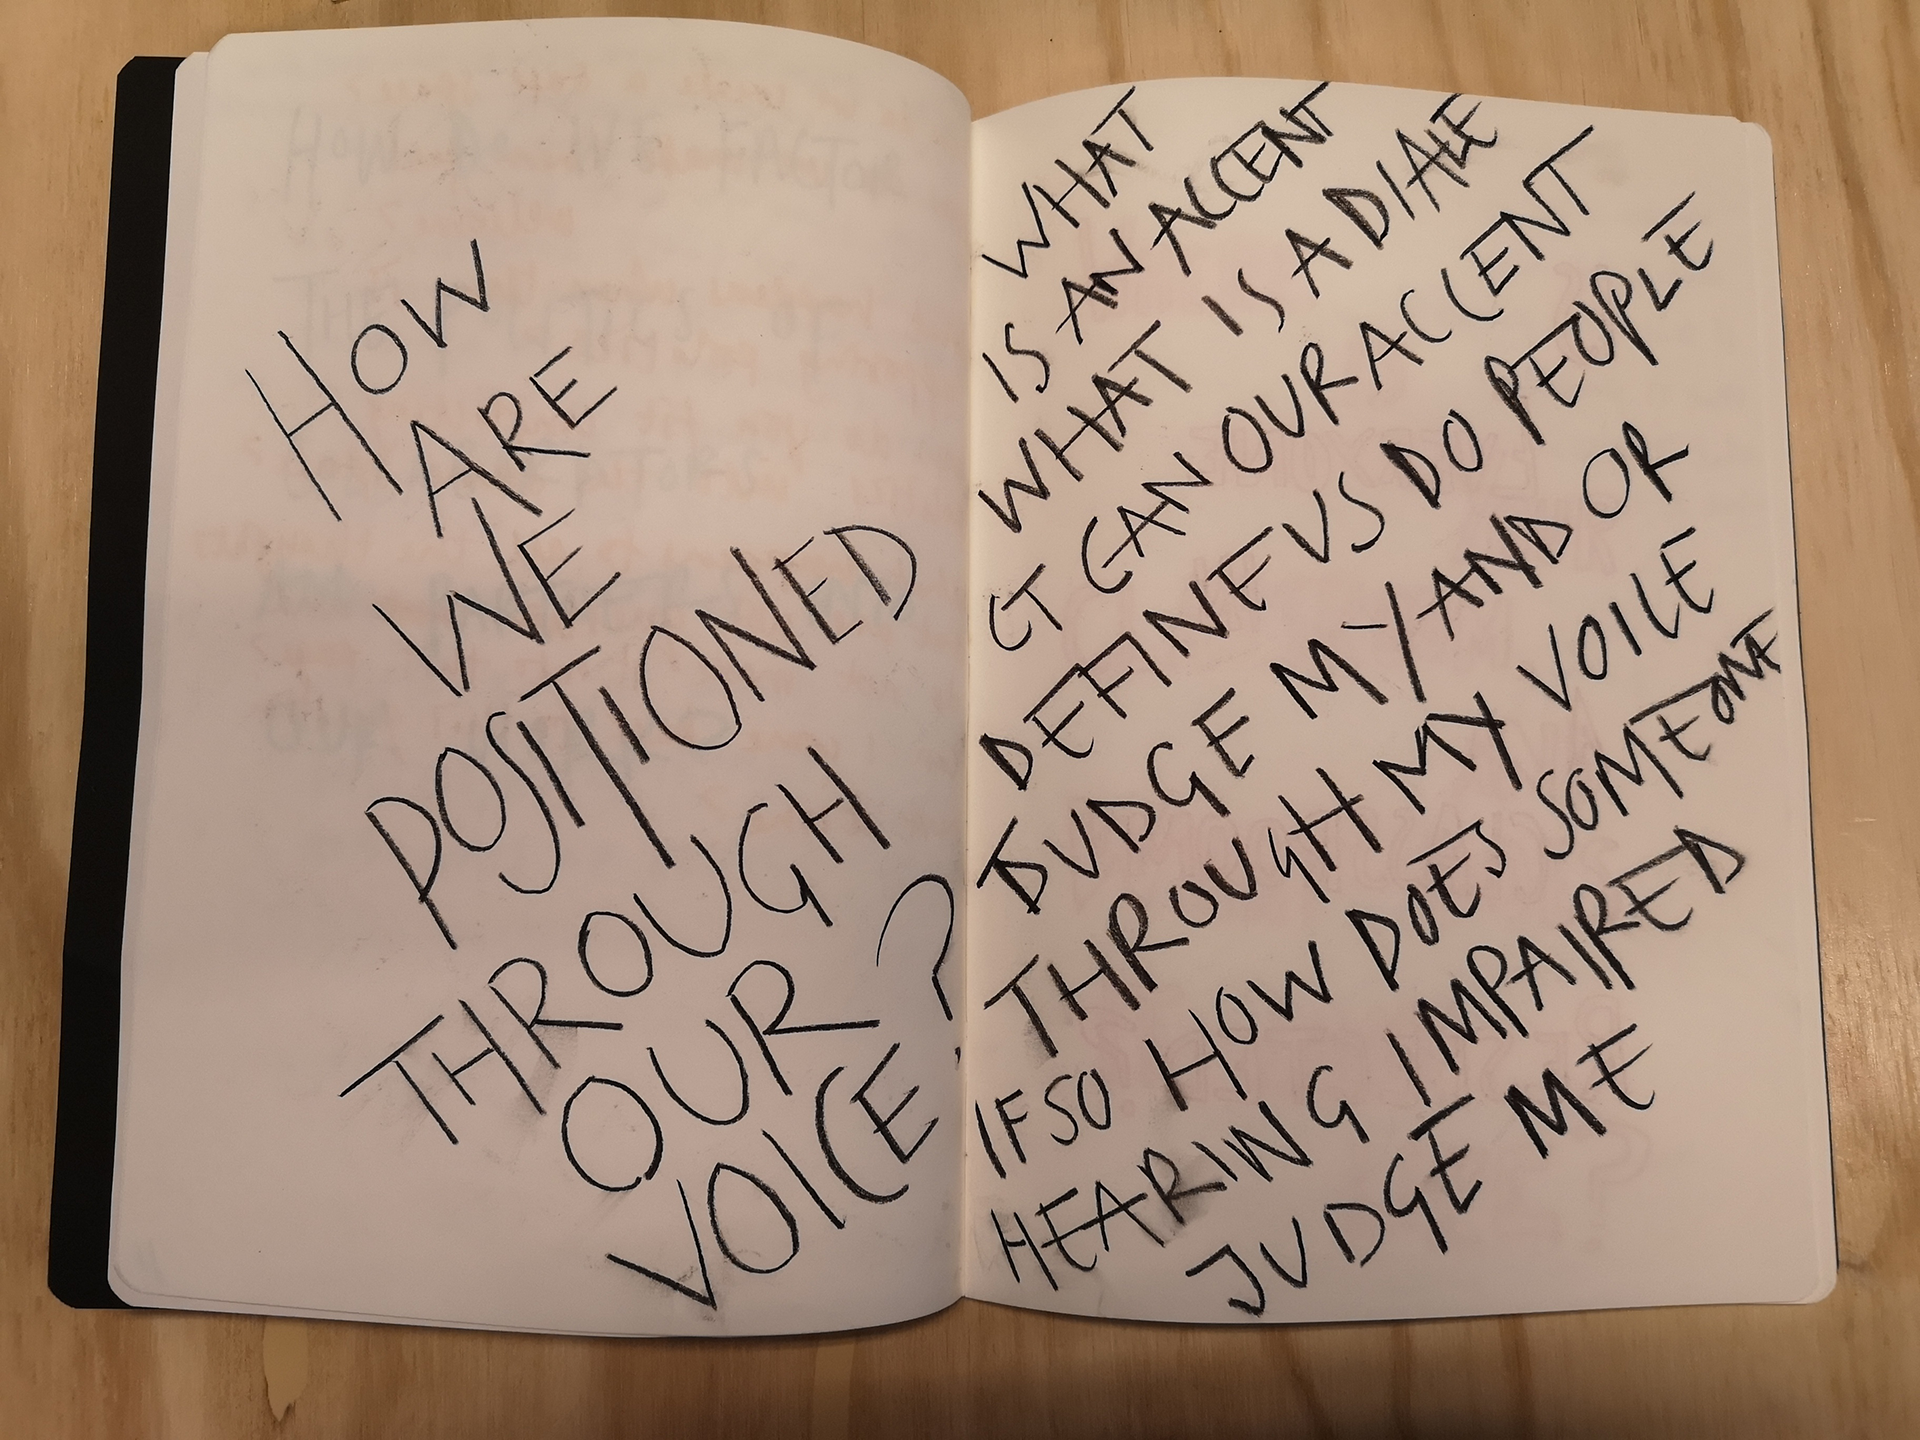 HOW
ARE
WE
POSITIONED
THROUGH
OUR
VOICE?
WHAT
IS AN ACCENT
WHAT IS A DIALE
CT CAN OUR ACCENT
DEFINE US DO PEOPLE
JUDGE MY AND OR
THROUGH MY VOICE
IF SO HOW DOES SOMEONE
HEARING IMPAIRED
JUDGE ME